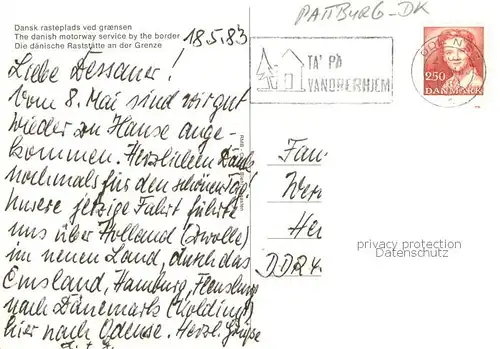 Dansk rasteplads ved grænsen
The danish motorway service by the border
Die dänische Raststätte an der Grenze
18.5.83
PATTBURG-DK
Liebe Dessauer!
Vom 8. Mai sind wir gut
wieder zu Hause ange-
kommen. Herzlichen Dank
nochmals für den schönen Tag!
Unsere jetzige Fahrt führte
uns über Holland (Zwolle)
im neuen Land, durch das
Emsland, Hamburg, Flensburg
nach Dänemark (Kolding)
hier nach Odense. Herzl. Grüße
TA' PÅ
VANDRERHJEM
ODENSE
250
DANMARK
Fam
Wer
He
DDR 4
privacy protection
Datenschutz